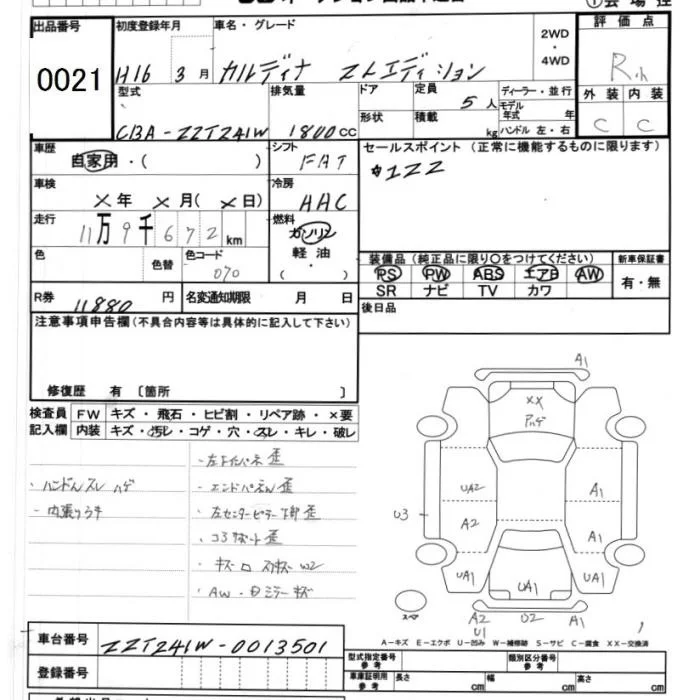 出品番号
0021
初度登録年月
H16 3月
車名・グレード
カルディナ ZTエディション
2WD
・
4WD
評価点
外装 内装
C C
型式
CBA-ZZT241W
排気量
1800cc
ドア
形状
定員
5人
積載
kg
ディーラー・並行
モデル
年式 年
ハンドル 左・右
車歴
自家用・( )
シフト
FAT
セールスポイント(正常に機能するものに限ります)
車検
×年 ×月(×日)
冷房
AAC
走行
11万9千672km
燃料
ガソリン
軽油
( ・ )
色
色替
色コード
070
装備品(純正品に限り○をつけてください)
PS PW ABS エアB AW
SR ナビ TV カワ
新車保証書
有・無
R券
11880円
名変通知期限 月 日
後日品
注意事項申告欄(不具合内容等は具体的に記入して下さい)
修復歴 有〔箇所 〕
検査員
記入欄
FW キズ・飛石・ヒビ割・リペア跡・×要
内装 キズ・汚レ・コゲ・穴・スレ・キレ・破レ
・ハンドルスレ ハゲ
・内張りウキ
・エンドパネル 歪
・左センターピラー下部 歪
・コアサポート歪
A1
XX
UA2
A1
U3
A2
A1
UA1
UA1
UA1
スペア
A2
U1
U2
A1
A-キズ E-エクボ U-凹み W-補修跡 S-サビ C-腐食 XX-交換済
車台番号
ZZT241W-0013501
登録番号
型式指定番号
参考
類別区分番号
参考
車庫証明用
参考
長さ cm
幅 cm
高さ cm